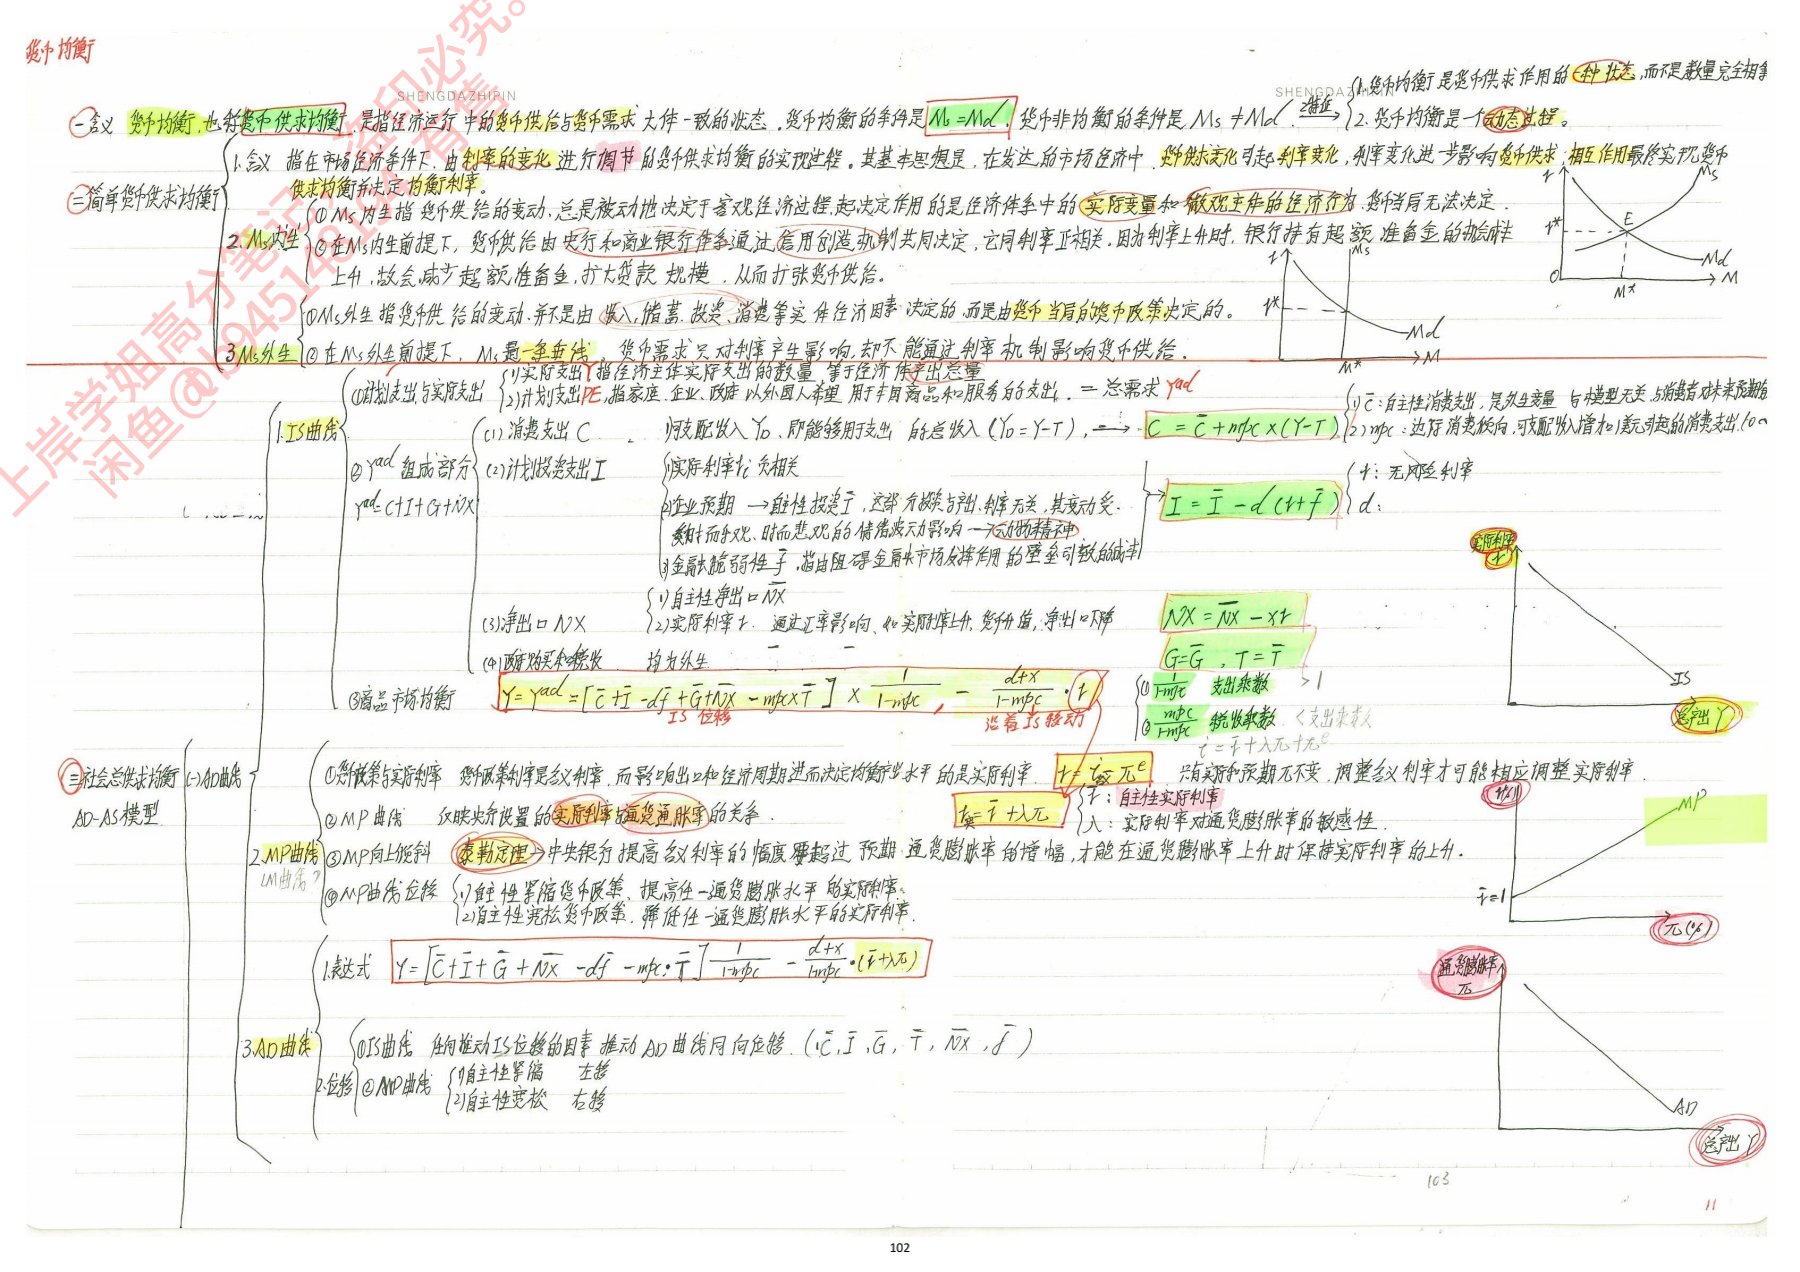 货币均衡
SHENGDAZHIPIN
SHENGDAZHIPIN
一含义 货币均衡,也称货币供求均衡,是指经济运行中的货币供给与货币需求大体一致的状态。货币均衡的条件是 Ms=Md,货币非均衡的条件是 Ms≠Md. 特征
1.货币均衡是货币供求作用的一种状态,而不是数量完全相等
2.货币均衡是一个动态过程。
二简单货币供求均衡
1.含义 指在市场经济条件下,由利率的变化进行调节的货币供求均衡的实现过程。其基本思想是,在发达的市场经济中,货币供求变化引起利率变化,利率变化进一步影响货币供求,相互作用最终实现货币
供求均衡并决定均衡利率。
2.Ms内生
①Ms内生指货币供给的变动,总是被动地决定于客观经济过程,起决定作用的是经济体系中的实际变量和微观主体的经济行为,货币当局无法决定.
②在Ms内生前提下,货币供给由央行和商业银行体系通过信用创造机制共同决定,它同利率正相关,因为利率上升时,银行持有超额准备金的机会成本
上升,故会减少超额准备金,扩大贷款规模,从而扩张货币供给。
3.Ms外生
①Ms外生指货币供给的变动,并不是由收入,储蓄,投资,消费等实体经济因素决定的,而是由货币当局的货币政策决定的。
②在Ms外生前提下,Ms是一条垂线,货币需求只对利率产生影响,却不能通过利率机制影响货币供给.
r Ms r* E Md O M* M
r Ms r* Md M* M
三社会总供求均衡
AD-AS模型
(一)AD曲线
1.IS曲线
①计划支出与实际支出
(1)实际支出Y 指经济主体实际支出的数量 等于经济体产出总量
(2)计划支出PE,指家庭、企业、政府以外国人希望用于本国商品和服务的支出. = 总需求 Yad
②Yad组成部分
Yad=C+I+G+NX
(1)消费支出C
可支配收入YD,即能够用于支出的总收入(YD=Y-T), C=C̄+mpc×(Y-T)
(1)C̄:自主性消费支出,是外生变量,与模型无关,与消费者对未来预期
(2)mpc:边际消费倾向,可支配收入增加1美元引起的消费支出
(2)计划投资支出I
(1)实际利率ri 负相关
(2)企业预期 → 自主性投资Ī,这部分投资与产出、利率无关,其变动受
时而乐观、时而悲观的情绪波动影响 → 动物精神
(3)金融脆弱性f̄,指由阻碍金融市场发挥作用的壁垒引致的成本
I=Ī-d(r+f̄)
r:无风险利率
d:
(3)净出口NX
(1)自主性净出口N̄X̄
(2)实际利率r 通过汇率影响,如实际利率上升,货币升值,净出口下降
NX=N̄X̄-xr
(4)政府购买和税收 均为外生
G=Ḡ,T=T̄
③商品市场均衡
Y=Yad=[C̄+Ī-df̄+Ḡ+N̄X̄-mpc×T̄]×1/(1-mpc)-(d+x)/(1-mpc)·r
IS位移 沿着IS移动
① 1/(1-mpc) 支出乘数 >1
② mpc/(1-mpc) 税收乘数 <支出乘数
i=r̄+λπ+πe
实际利率 r IS 总产出Y
2.MP曲线
(LM曲线?)
①货币政策与实际利率 货币政策利率是名义利率,而影响出口和经济周期进而决定均衡产出水平的是实际利率.
r=i-πe 只有实际和预期π不变,调整名义利率才可能相应调整实际利率.
②MP曲线 反映央行设置的实际利率与通货膨胀率的关系.
r=r̄+λπ
r̄:自主性实际利率
λ:实际利率对通货膨胀率的敏感性.
③MP向上倾斜 泰勒定理→中央银行提高名义利率的幅度要超过预期通货膨胀率的增幅,才能在通货膨胀率上升时保持实际利率的上升.
④MP曲线位移
(1)自主性紧缩货币政策,提高任一通货膨胀水平的实际利率.
(2)自主性宽松货币政策,降低任一通货膨胀水平的实际利率.
r(%) MP r̄=1 π(%)
3.AD曲线
1.表达式 Y=[C̄+Ī+Ḡ+N̄X̄-df̄-mpc·T̄]1/(1-mpc)-(d+x)/(1-mpc)·(r̄+λπ)
2.位移
①IS曲线 任何推动IS位移的因素推动AD曲线同向位移.(C̄,Ī,Ḡ,T̄,N̄X̄,f̄)
②MP曲线
(1)自主性紧缩 左移
(2)自主性宽松 右移
通货膨胀率 π AD 总产出Y
103
11
102
上岸学姐高分笔记
闲鱼@b94514819
盗印必究。